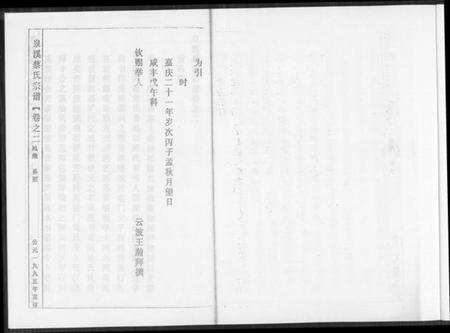 为引
时
嘉庆二十一年岁次丙子孟秋月望日
咸丰戊午科
钦赐举人 云波王 拜撰
泉溪蔡氏宗谱 卷之二
公元一九九五年